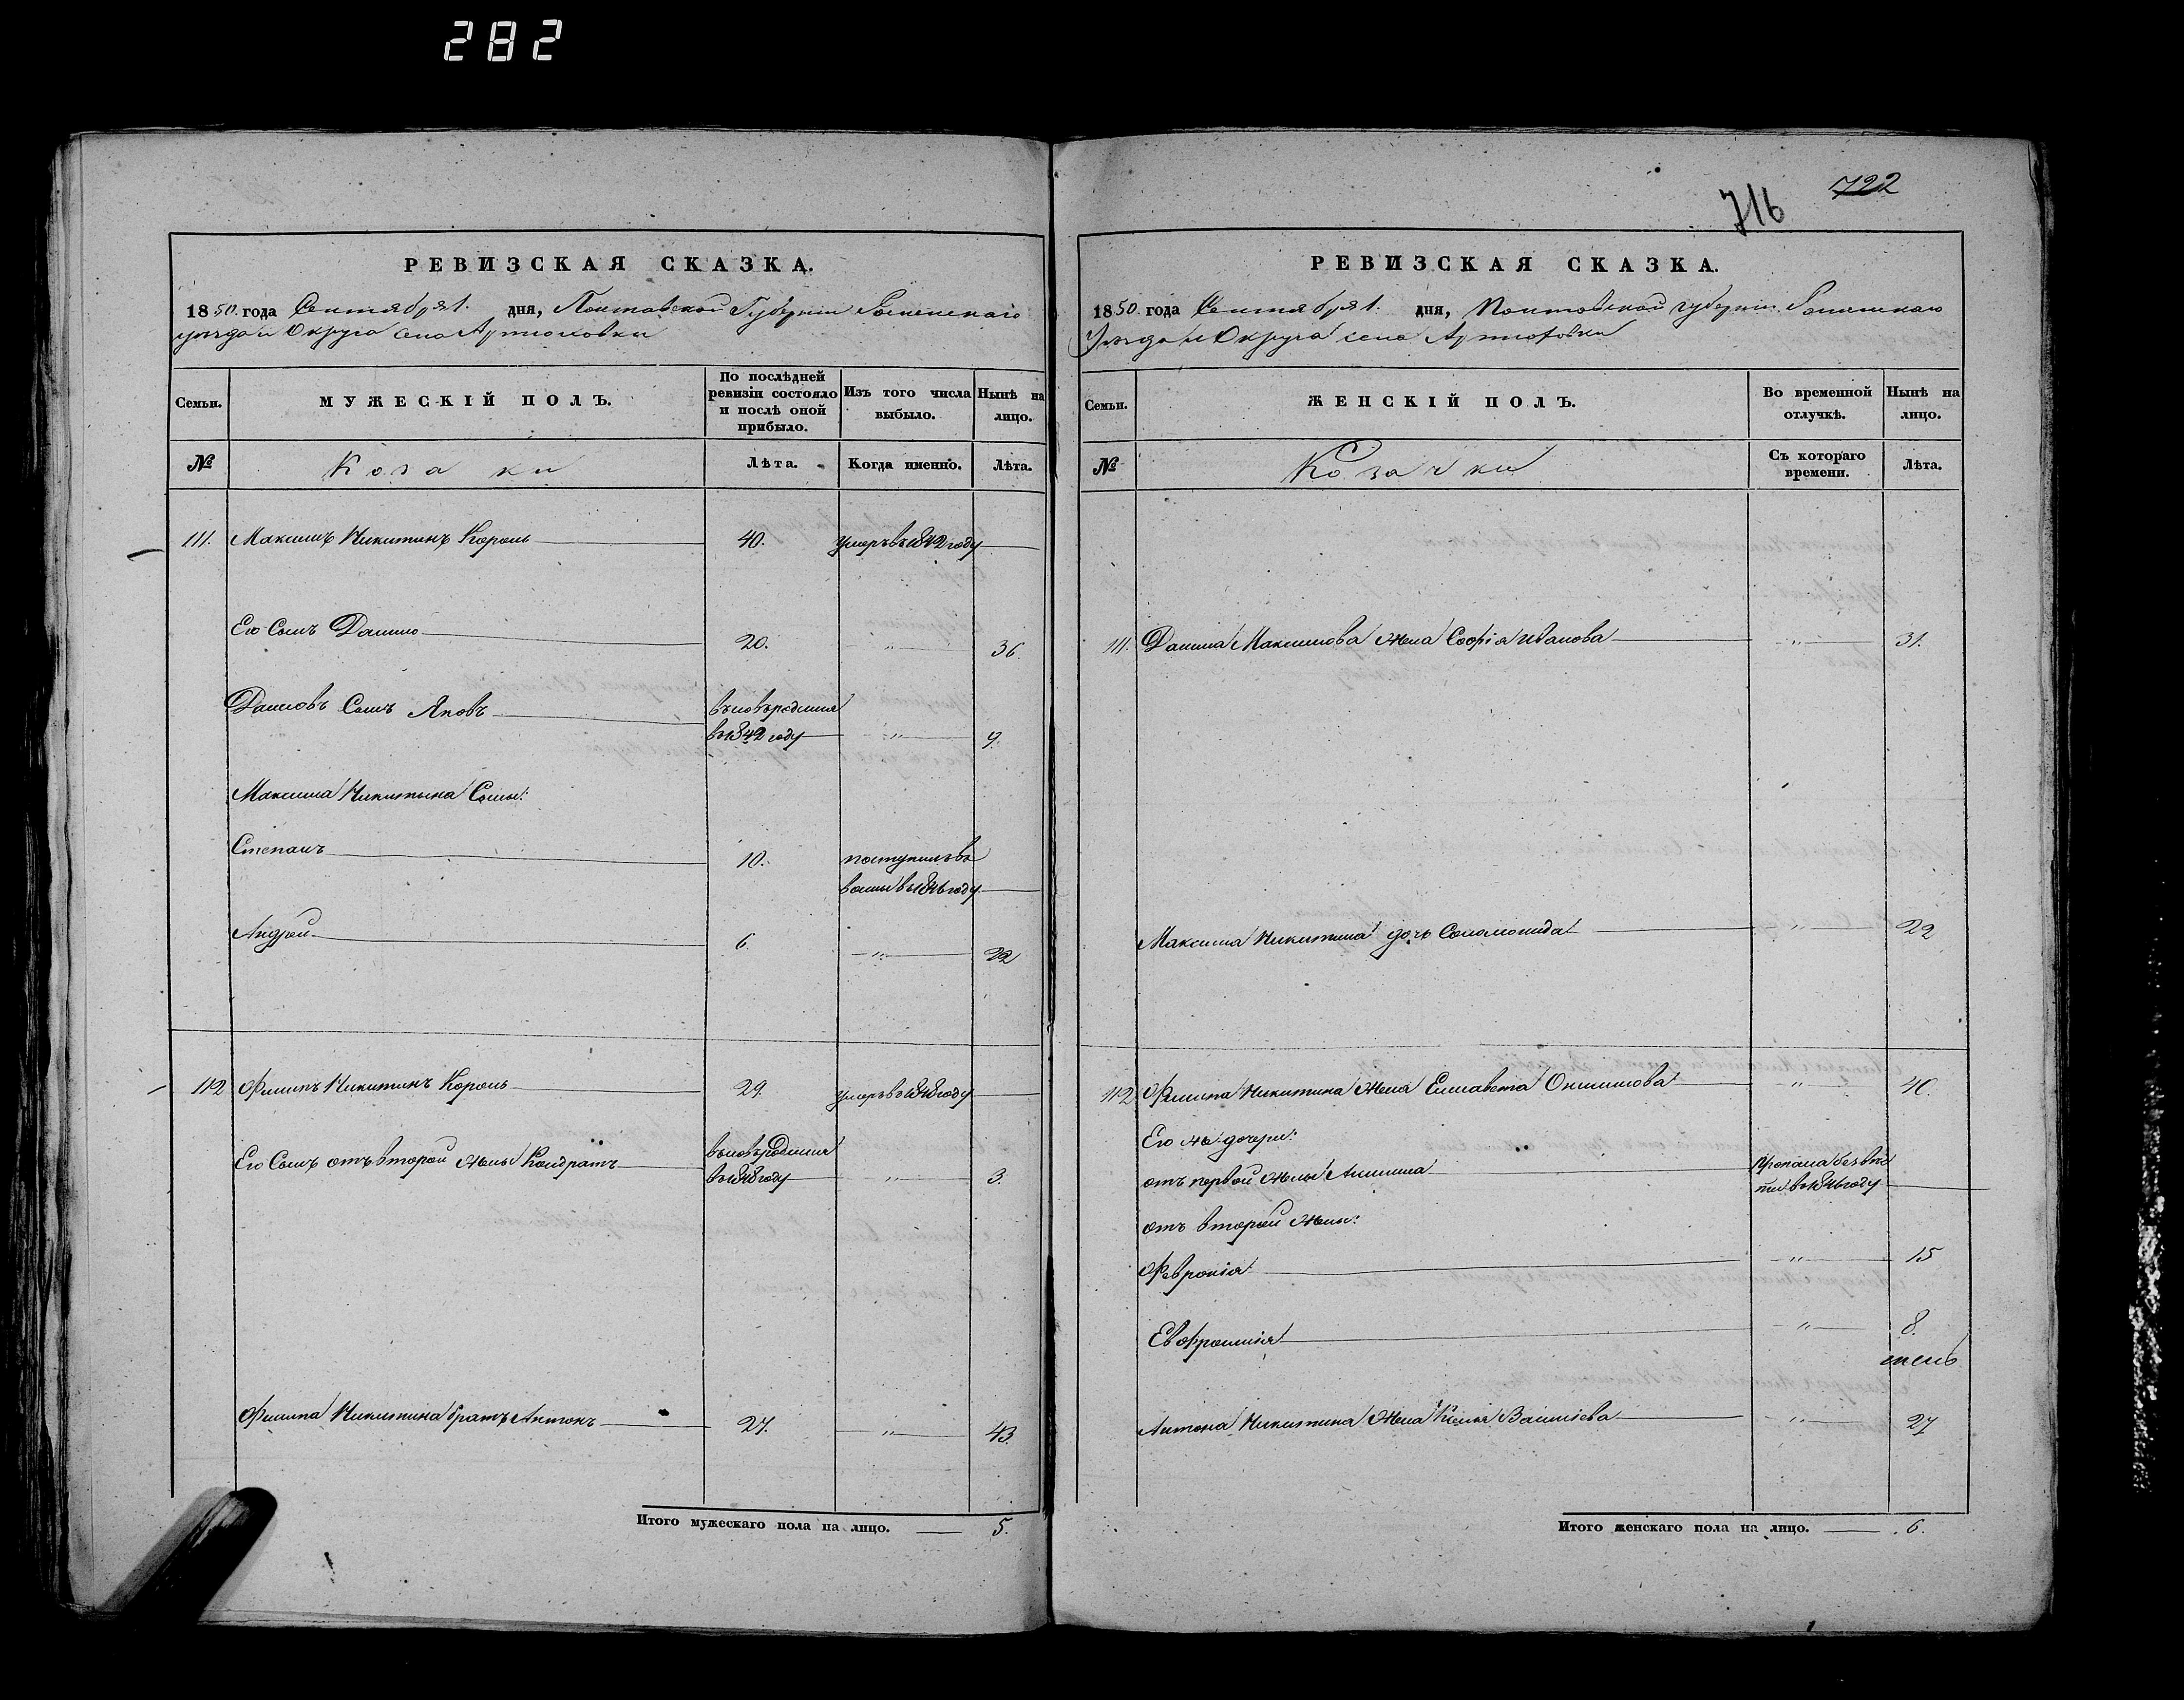 282
РЕВИЗСКАЯ СКАЗКА.
1850. года Сентября 1. дня, Полтавской Губерніи Роменскаго
уѣзда и Округа села Артюховки
Семьи.
МУЖЕСКІЙ ПОЛЪ.
По послѣдней ревизіи состояло и послѣ оной прибыло.
Изъ того числа выбыло.
Нынѣ на лицо.
№
Козаки
Лѣта.
Когда именно.
Лѣта.
111. Максимъ Никитинъ Король 40. умеръ въ 1842 году
Его Сынъ Данило 20. " 36.
Даниловъ Сынъ Яковъ вновьродился
въ 1842 году " 9.
Максима Никитина Сыны:
Степанъ 10. поступилъ въ
въ 1846 году
Андрей 6. " 22
112 Филипъ Никитинъ Король 29. умеръ въ 1848 году
Его Сынъ отъ второй жены Кондратъ вновьродился
въ 1848 году " 3.
Филипа Никитина братъ Антонъ 27. " 43.
Итого мужескаго пола на лицо. 5.
716
722
РЕВИЗСКАЯ СКАЗКА.
1850 года Сентября 1. дня, Полтавской губерніи Роменскаго
Уѣзда и Округа села Артюховки
Семьи.
ЖЕНСКІЙ ПОЛЪ.
Во временной отлучкѣ.
Нынѣ на лицо.
№
Козачки
Съ котораго времени.
Лѣта.
111. Данила Максимова жена Софія Иванова " 31.
Максима Никитина дочь Соломонида " 22
112 Филипа Никитина жена Елисавета Онисимова " 40.
Его же дочери:
отъ первой жены Акилина Пропала безвѣс
ти въ 1846 году
отъ второй жены:
Февронія " 15
Евфросинія " 8.
Антона Никитина жена Ксенія Василіева " 27
Итого женскаго пола на лицо. 6.